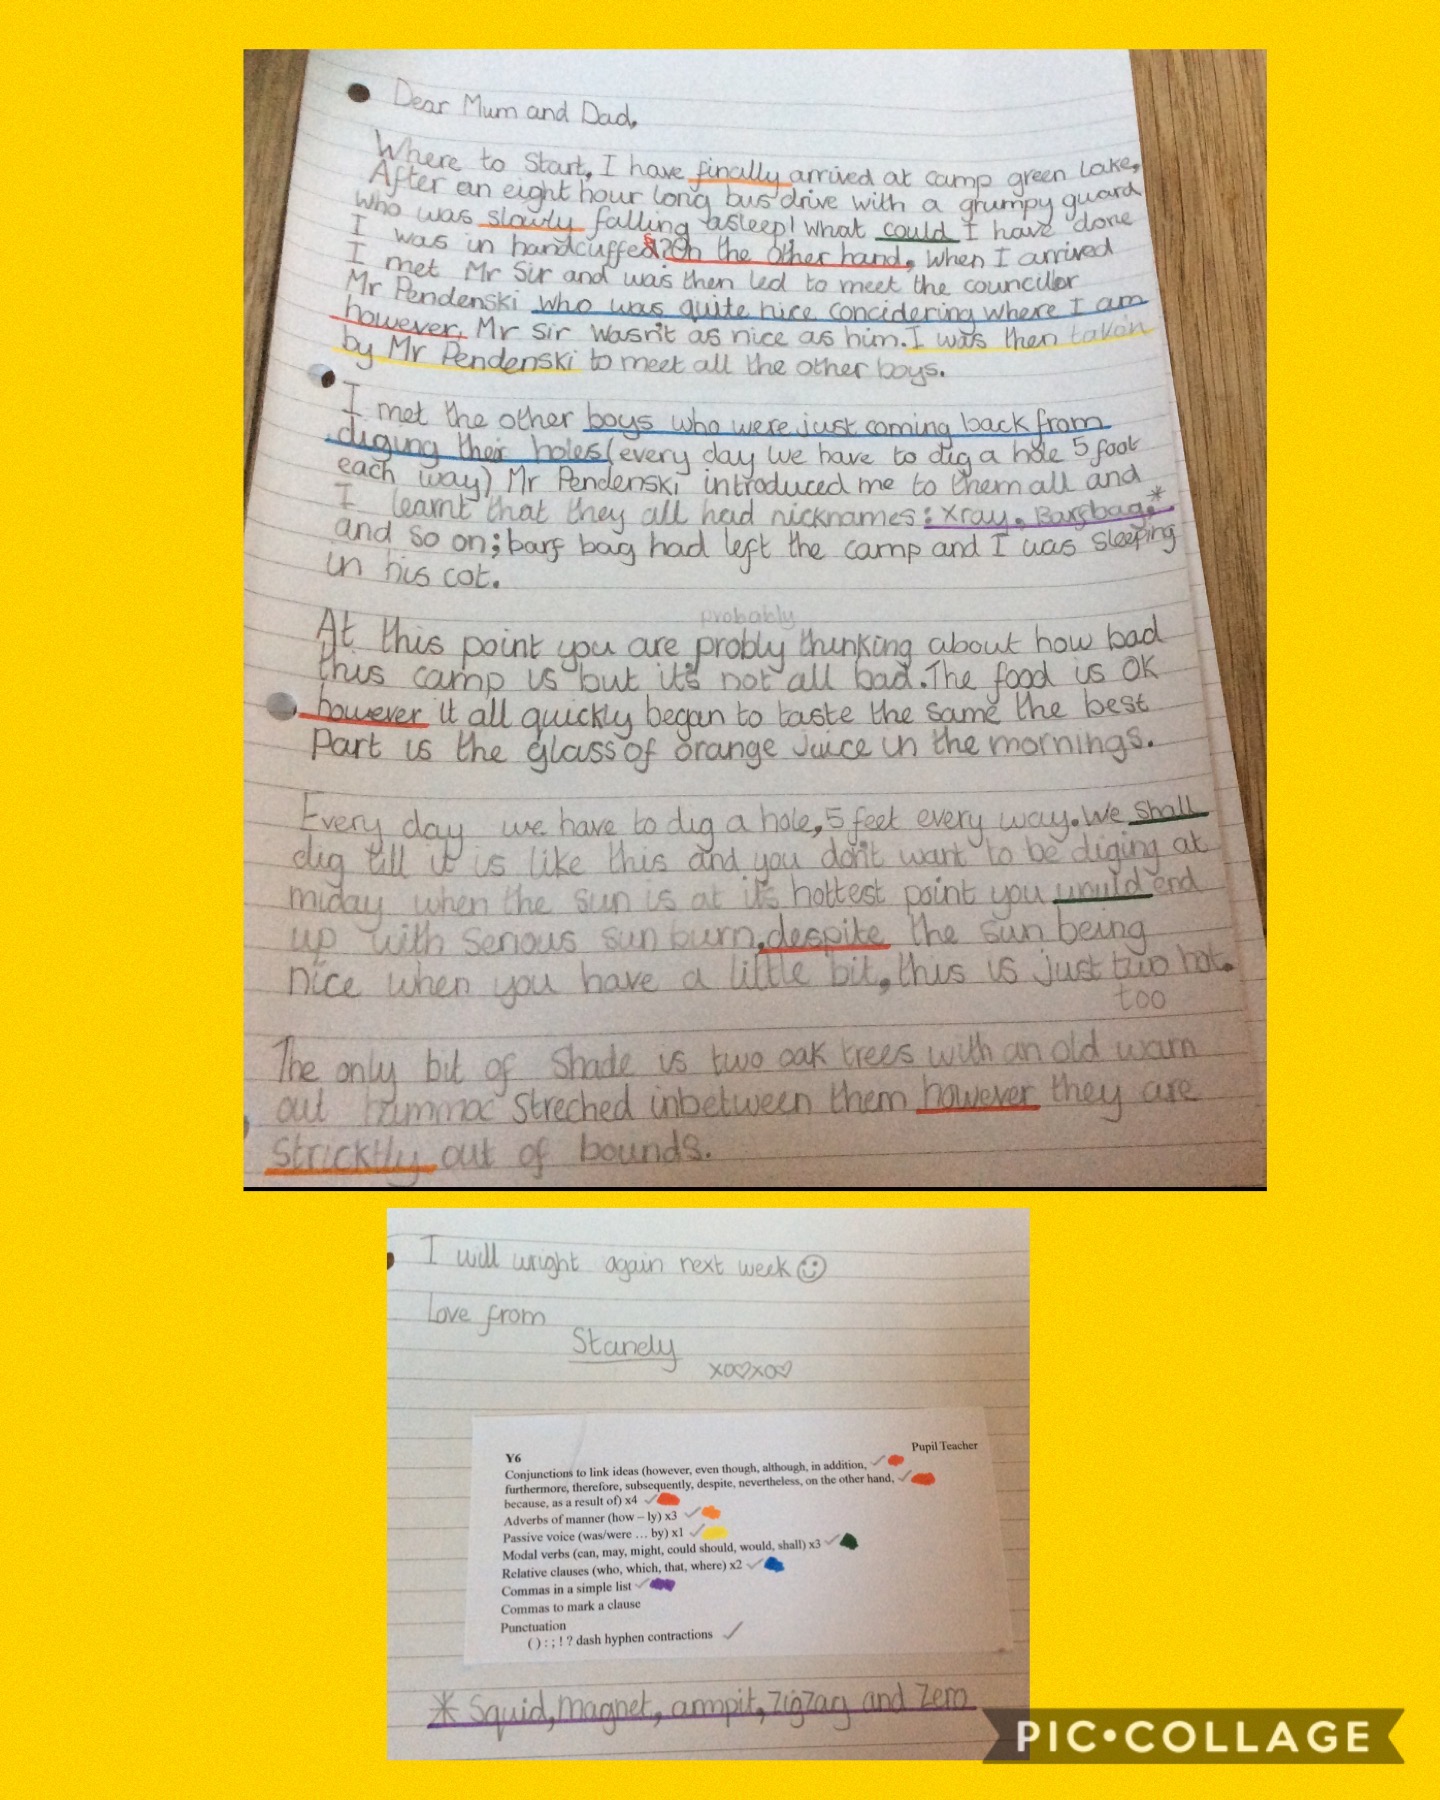 Dear Mum and Dad,
Where to Start, I have finally arrived at camp green lake,
After an eight hour long bus drive with a grumpy guard
who was slowly falling asleep! what could I have done
I was in handcuffed? On the other hand, when I arrived
I met Mr Sir and was then led to meet the councilor
Mr Pendenski who was quite nice concidering where I am
however, Mr Sir wasn't as nice as him. I was then taken
by Mr Pendenski to meet all the other boys.
I met the other boys who were just coming back from
diging their holes (every day we have to dig a hole 5 foot
each way) Mr Pendenski introduced me to them all and
I learnt that they all had nicknames: xray, Barfbag,*
and so on; barf bag had left the camp and I was sleeping
in his cot.
probably
At this point you are probly thinking about how bad
this camp is but it's not all bad. The food is OK
however it all quickly began to taste the same the best
Part is the glass of orange Juice in the mornings.
Every day we have to dig a hole, 5 feet every way. We shall
dig till it is like this and you don't want to be diging at
miday when the sun is at it's hottest point you would end
up with serious sun burn, despite the sun being
nice when you have a little bit, this is just two hot.
too
The only bit of Shade is two oak trees with an old warn
out hammoc streched inbetween them however they are
stricktly out of bounds.
I will wright again next week ☺
Love from
Stanely
xo♡xo♡
Pupil Teacher
Y6
Conjunctions to link ideas (however, even though, although, in addition,
furthermore, therefore, subsequently, despite, nevertheless, on the other hand,
because, as a result of) x4
Adverbs of manner (how – ly) x3
Passive voice (was/were … by) x1
Modal verbs (can, may, might, could should, would, shall) x3
Relative clauses (who, which, that, where) x2
Commas in a simple list
Commas to mark a clause
Punctuation
( ) : ; ! ? dash hyphen contractions
* Squid, magnet, armpit, zigzag and Zero
PIC•COLLAGE